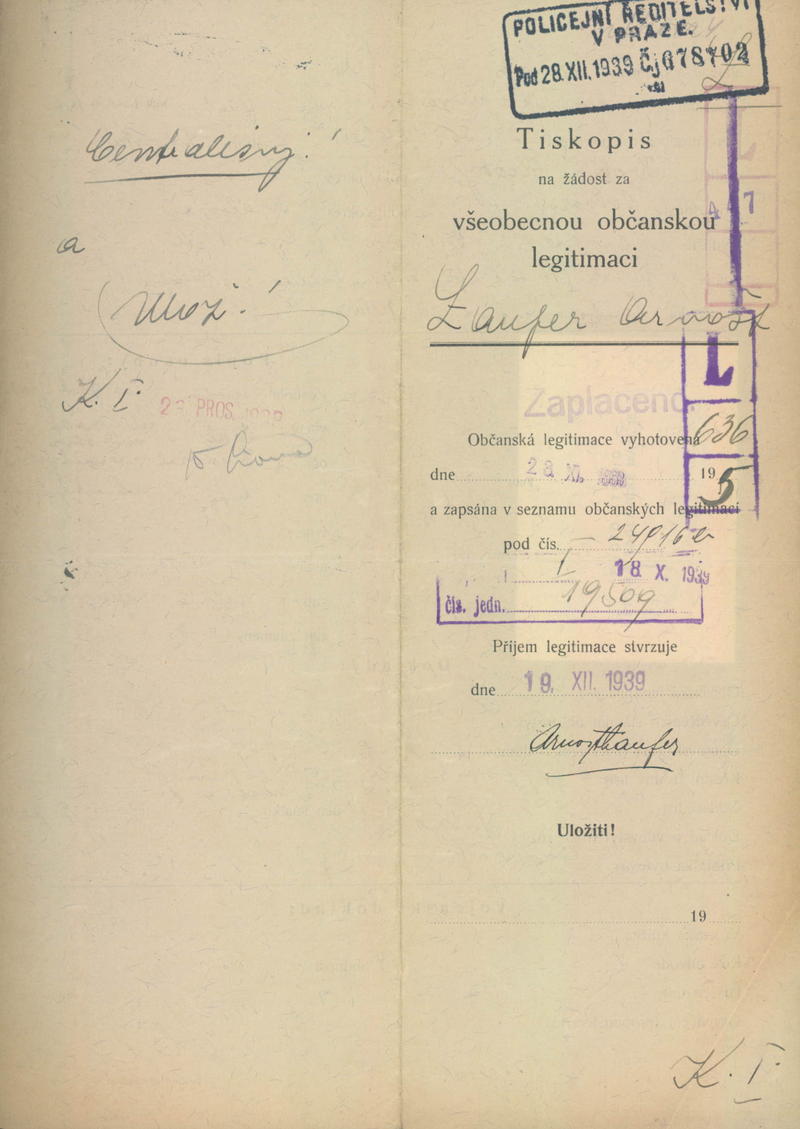 Centralisuj!
a
Ulož!
K. I.
POLICEJNÍ ŘEDITELSTVÍ
V PRAZE.
Pod 28. XII. 1939 Čj 678702
Tiskopis
na žádost za
všeobecnou občanskou
legitimaci
Laufer Arnošt
L
Zaplaceno.
Občanská legitimace vyhotovena
636
dne 28 XI. 1939 19
5
a zapsána v seznamu občanských legitimací
pod čís.
18. X. 1939
čís. jedn. 19509
Příjem legitimace stvrzuje
dne 19. XII. 1939
Arnošt Laufer
Uložiti!
19
K. I.